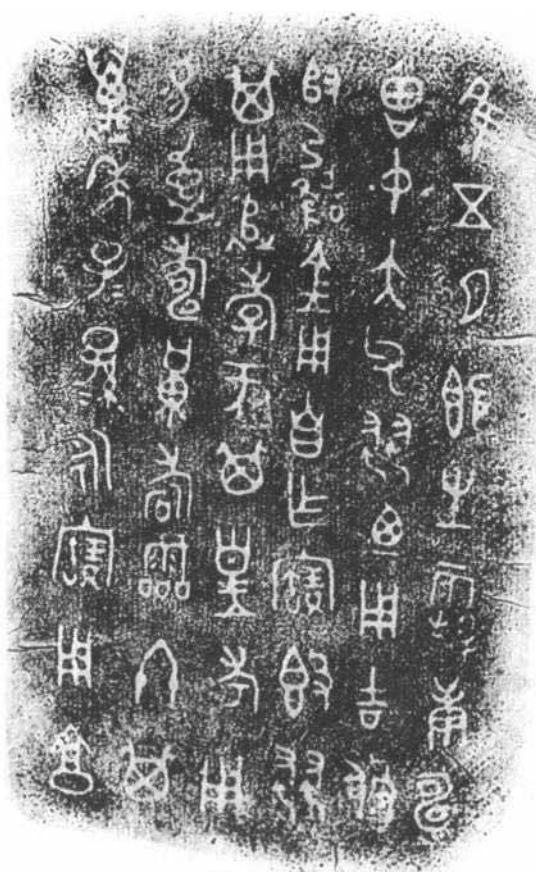 唯五月既生霸庚申
曾中大父蛕廼用吉攸
乃金用自乍寶簋蛕
其用追孝于其皇考用
易眉壽黃耇霝冬其
萬年子=孫=永寶用享